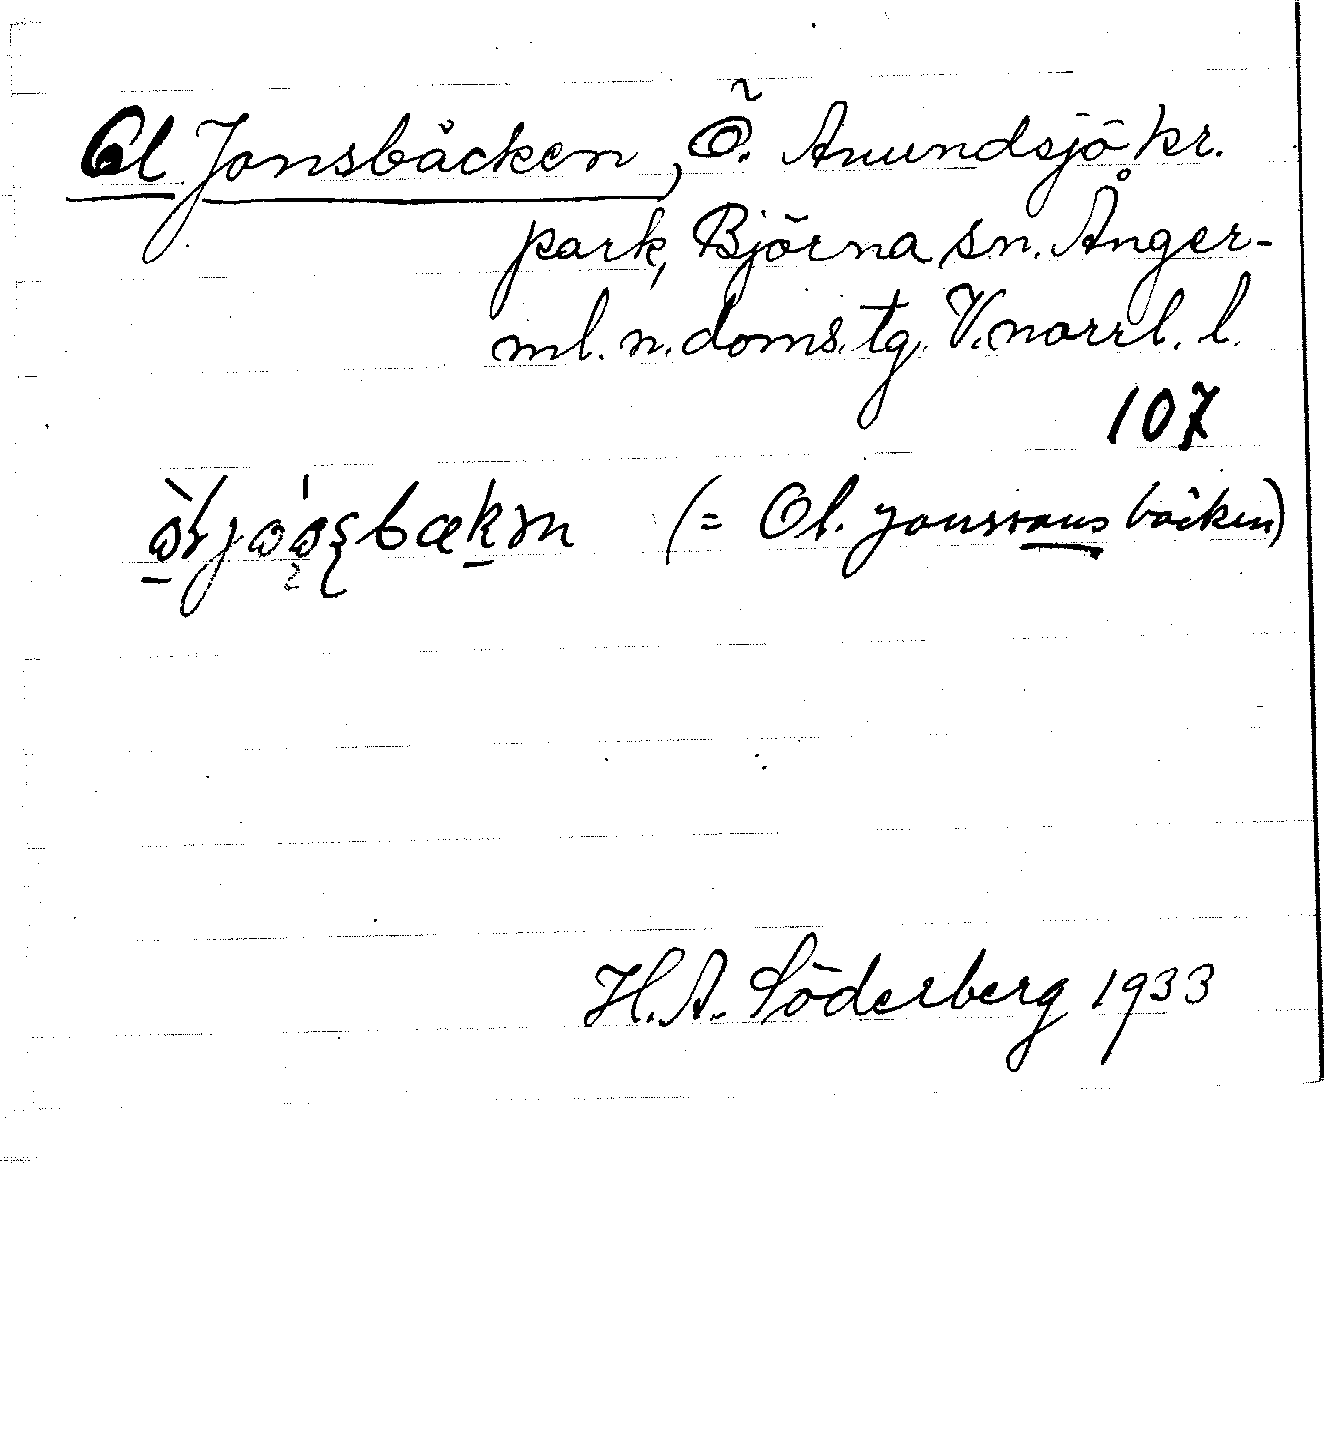 Ol Jonsbäcken, Ö. Anundsjö kr.
park, Björna sn. Ånger-
ml. n. doms. tg. V. norrl. l.
107
(= Ol. jonssons bäcken)
H. A. Söderberg 1933